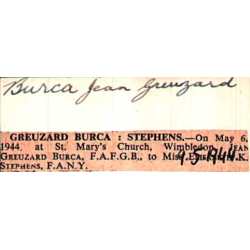 Burca Jean Greuzard
GREUZARD BURCA : STEPHENS.—On May 6,
1944, at St. Mary's Church, Wimbledon, JEAN
GREUZARD BURCA, F.A.F.G.B., to Miss K.
STEPHENS, F.A.N.Y.
9.5.1944